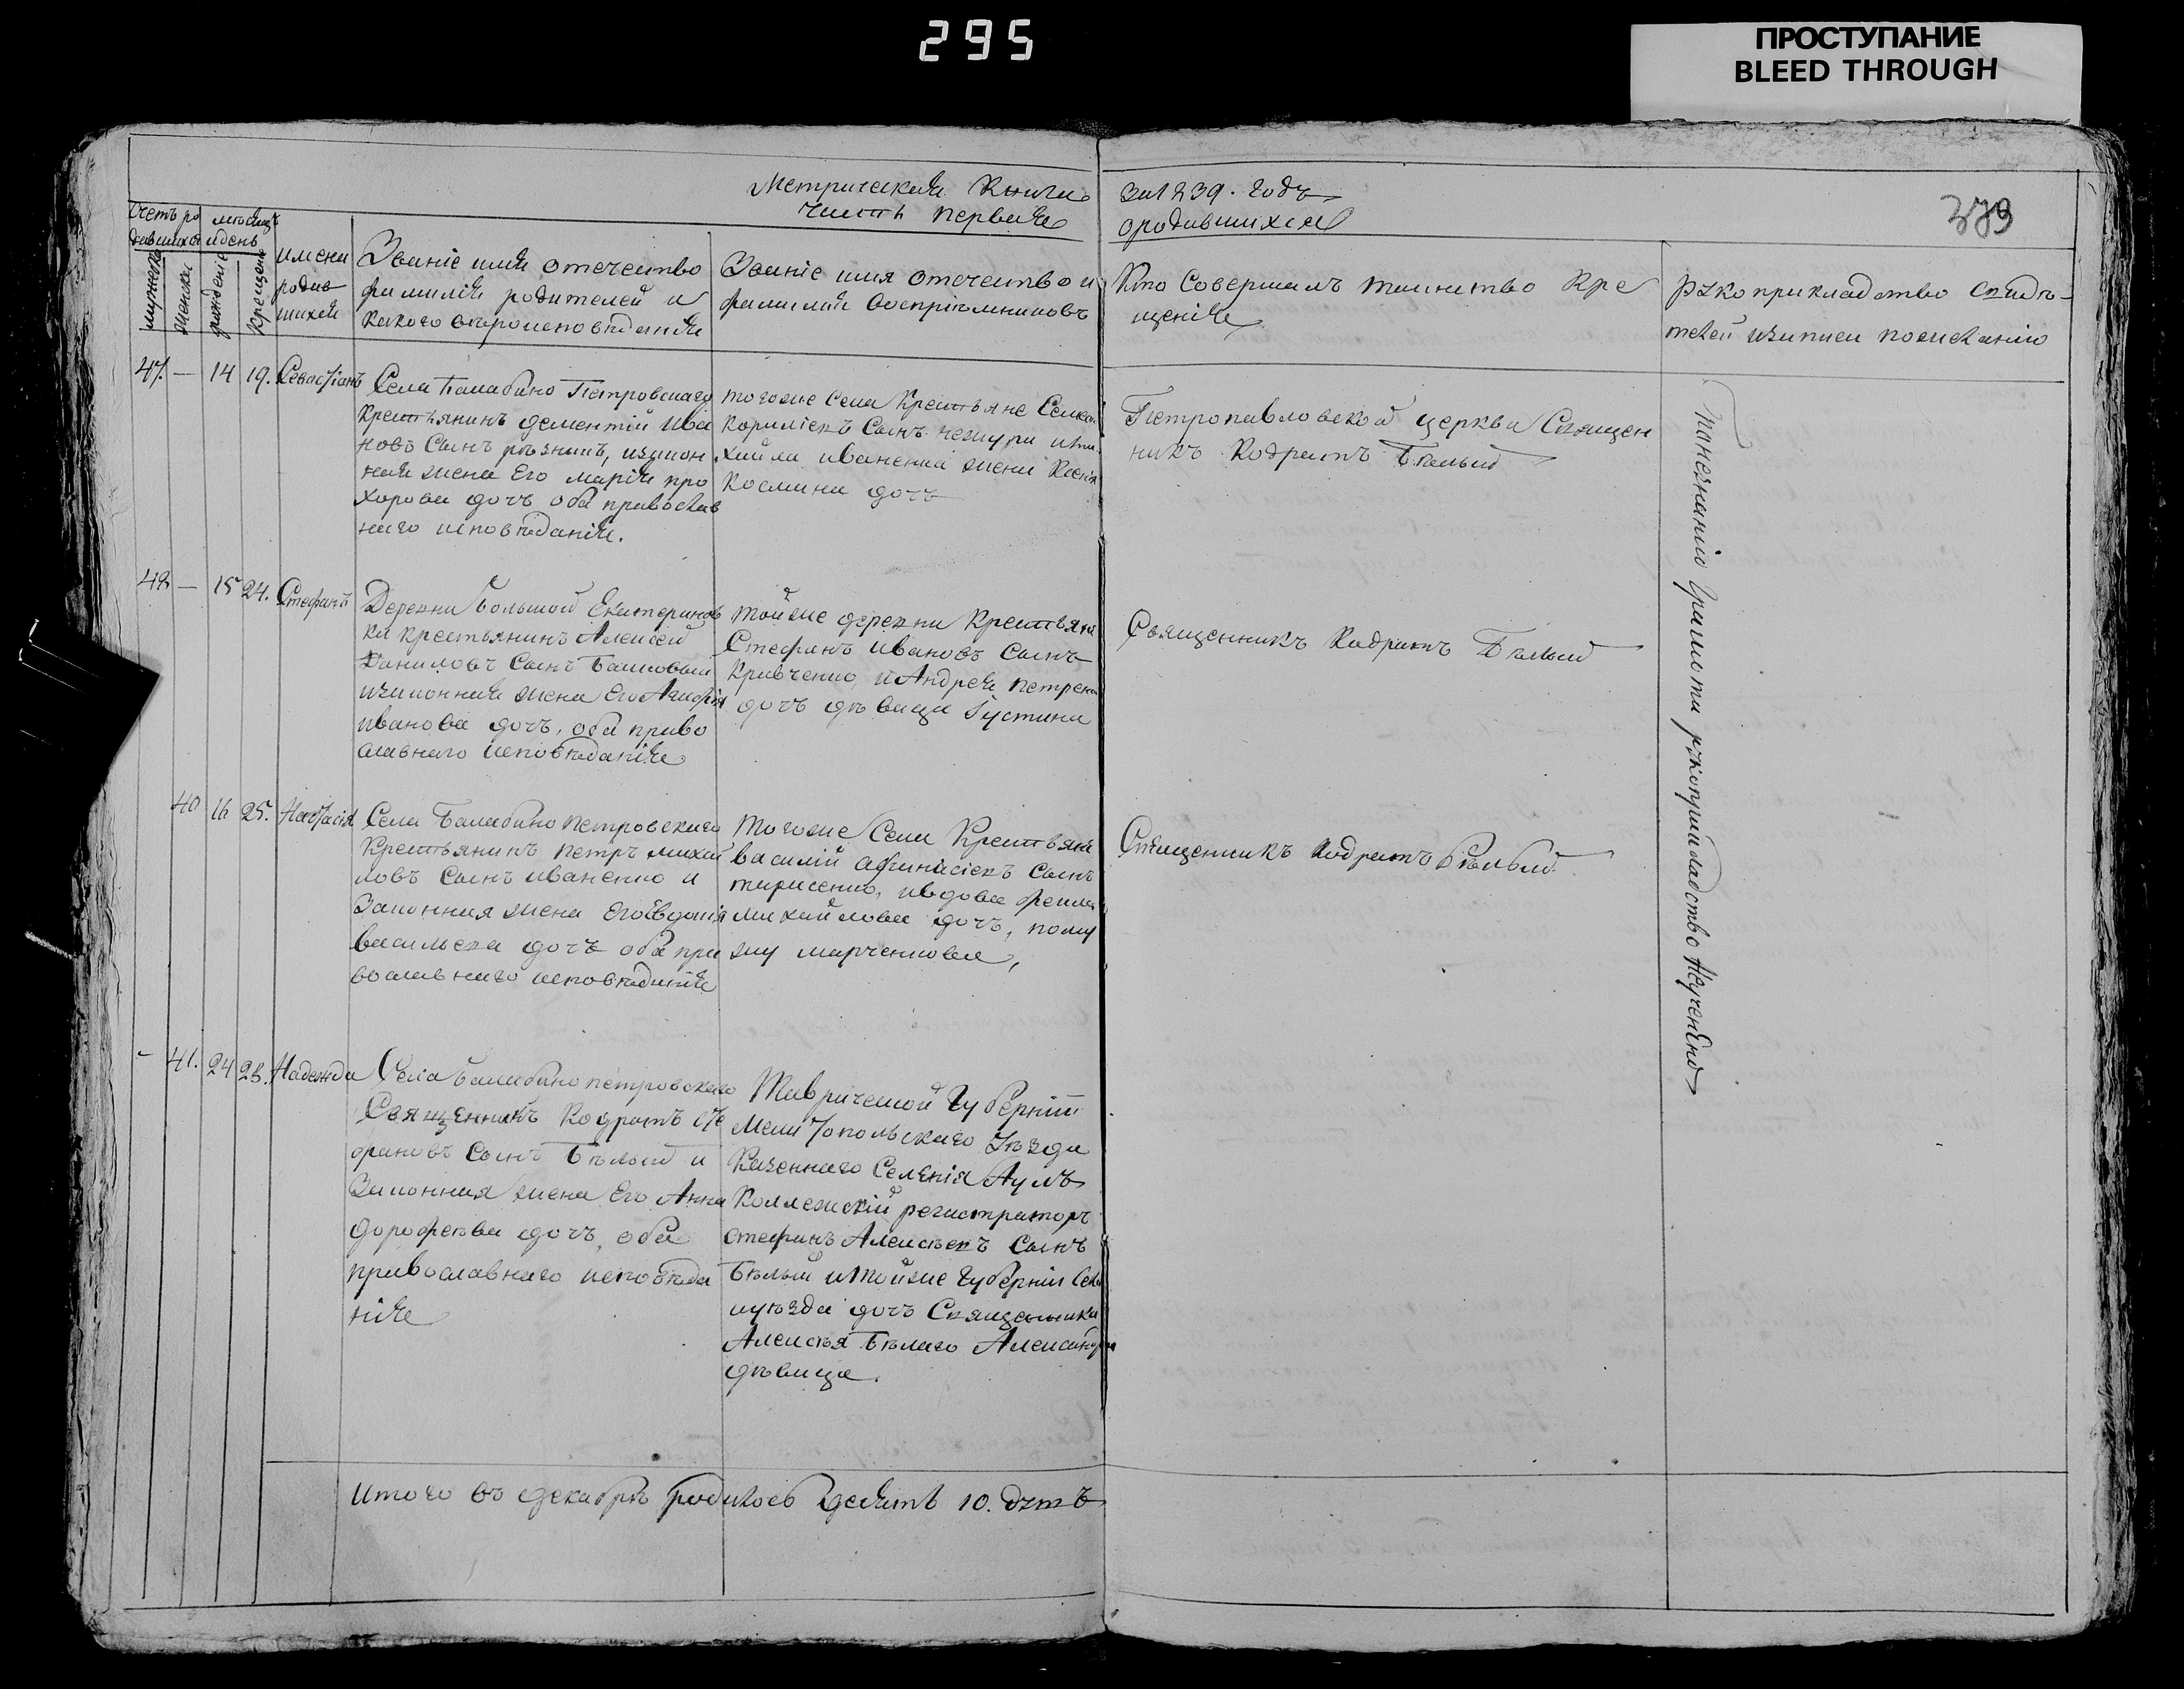 295
ПРОСТУПАНИЕ
BLEED THROUGH
Метрической Книги
часть первая
за 1839. годъ
ородившихся
379
Счетъ ро
дившихся
мѣсяцъ
идень
мужеска
женска
рожденіе
крещеніе
имена
родив
шихся
Званіе имя отечество
фамилія родителей и
какого вѣроисповѣданія
Званіе имя отечество и
фамилія воспріемниковъ
Кто совершалъ таинство Кре
щенія
Рукоприкладство свидѣ-
телей записи пожеланію
47. — 14 19. Севастіанъ
Села Балабино Петровскаго
крестьянинъ дементій ива
новъ сынъ рѣзникъ, изакон
ная жена Его марія про
хорова дочъ оба православ
наго исповѣданія.
тогоже села крестьяне
сынъ
иваненка жена
космина дочъ
Петропавловской церкви Священ
никъ Кодратъ Бѣлый
48 — 15 24. Стефанъ
Деревни большой Екатеринов
ки крестьянинъ Алексей
Даниловъ сынъ
изаконная жена Его Агафія
иванова дочъ, оба право
славнаго исповѣданія
тойже деревни крестьяне
Стефанъ ивановъ сынъ
Кравченко, и Андрея петрен
дочъ дѣвица Іустина
Священникъ Кодратъ Бѣлый
40 16 25. Настасія
Села Балабино петровскаго
Крестьянинъ петръ михай
ловъ сынъ иваненко и
Законная жена Его Евдокія
васильева дочъ оба пра
вославнаго исповѣданія
тогоже села Крестьяне
василій афанасіевъ сынъ
тарасенко, ивдова фекла
михайлова дочъ, пому
жу марченкова,
Священникъ Кодратъ Бѣлый
— 41. 24 28. Надежда
Села Балабино петровскаго
Священникъ Кодратъ сте
фановъ сынъ Бѣлый и
Законная жена Его Анна
дорофѣева дочъ, оба
православнаго исповѣда
нія
Таврической губерніи
Мелитопольскаго Уѣзда
Казеннаго Селенія Аулъ
Коллежскій регистраторъ
стефанъ Алексѣевъ сынъ
Бѣлый итойже губерніи
иуѣзда дочъ Священника
Алексѣя Бѣлаго Александра
дѣвица.
Понезнанію грамоты рукоприкладство Неучинено
Итого въ декабрѣ родилось десять 10. дѣтъ